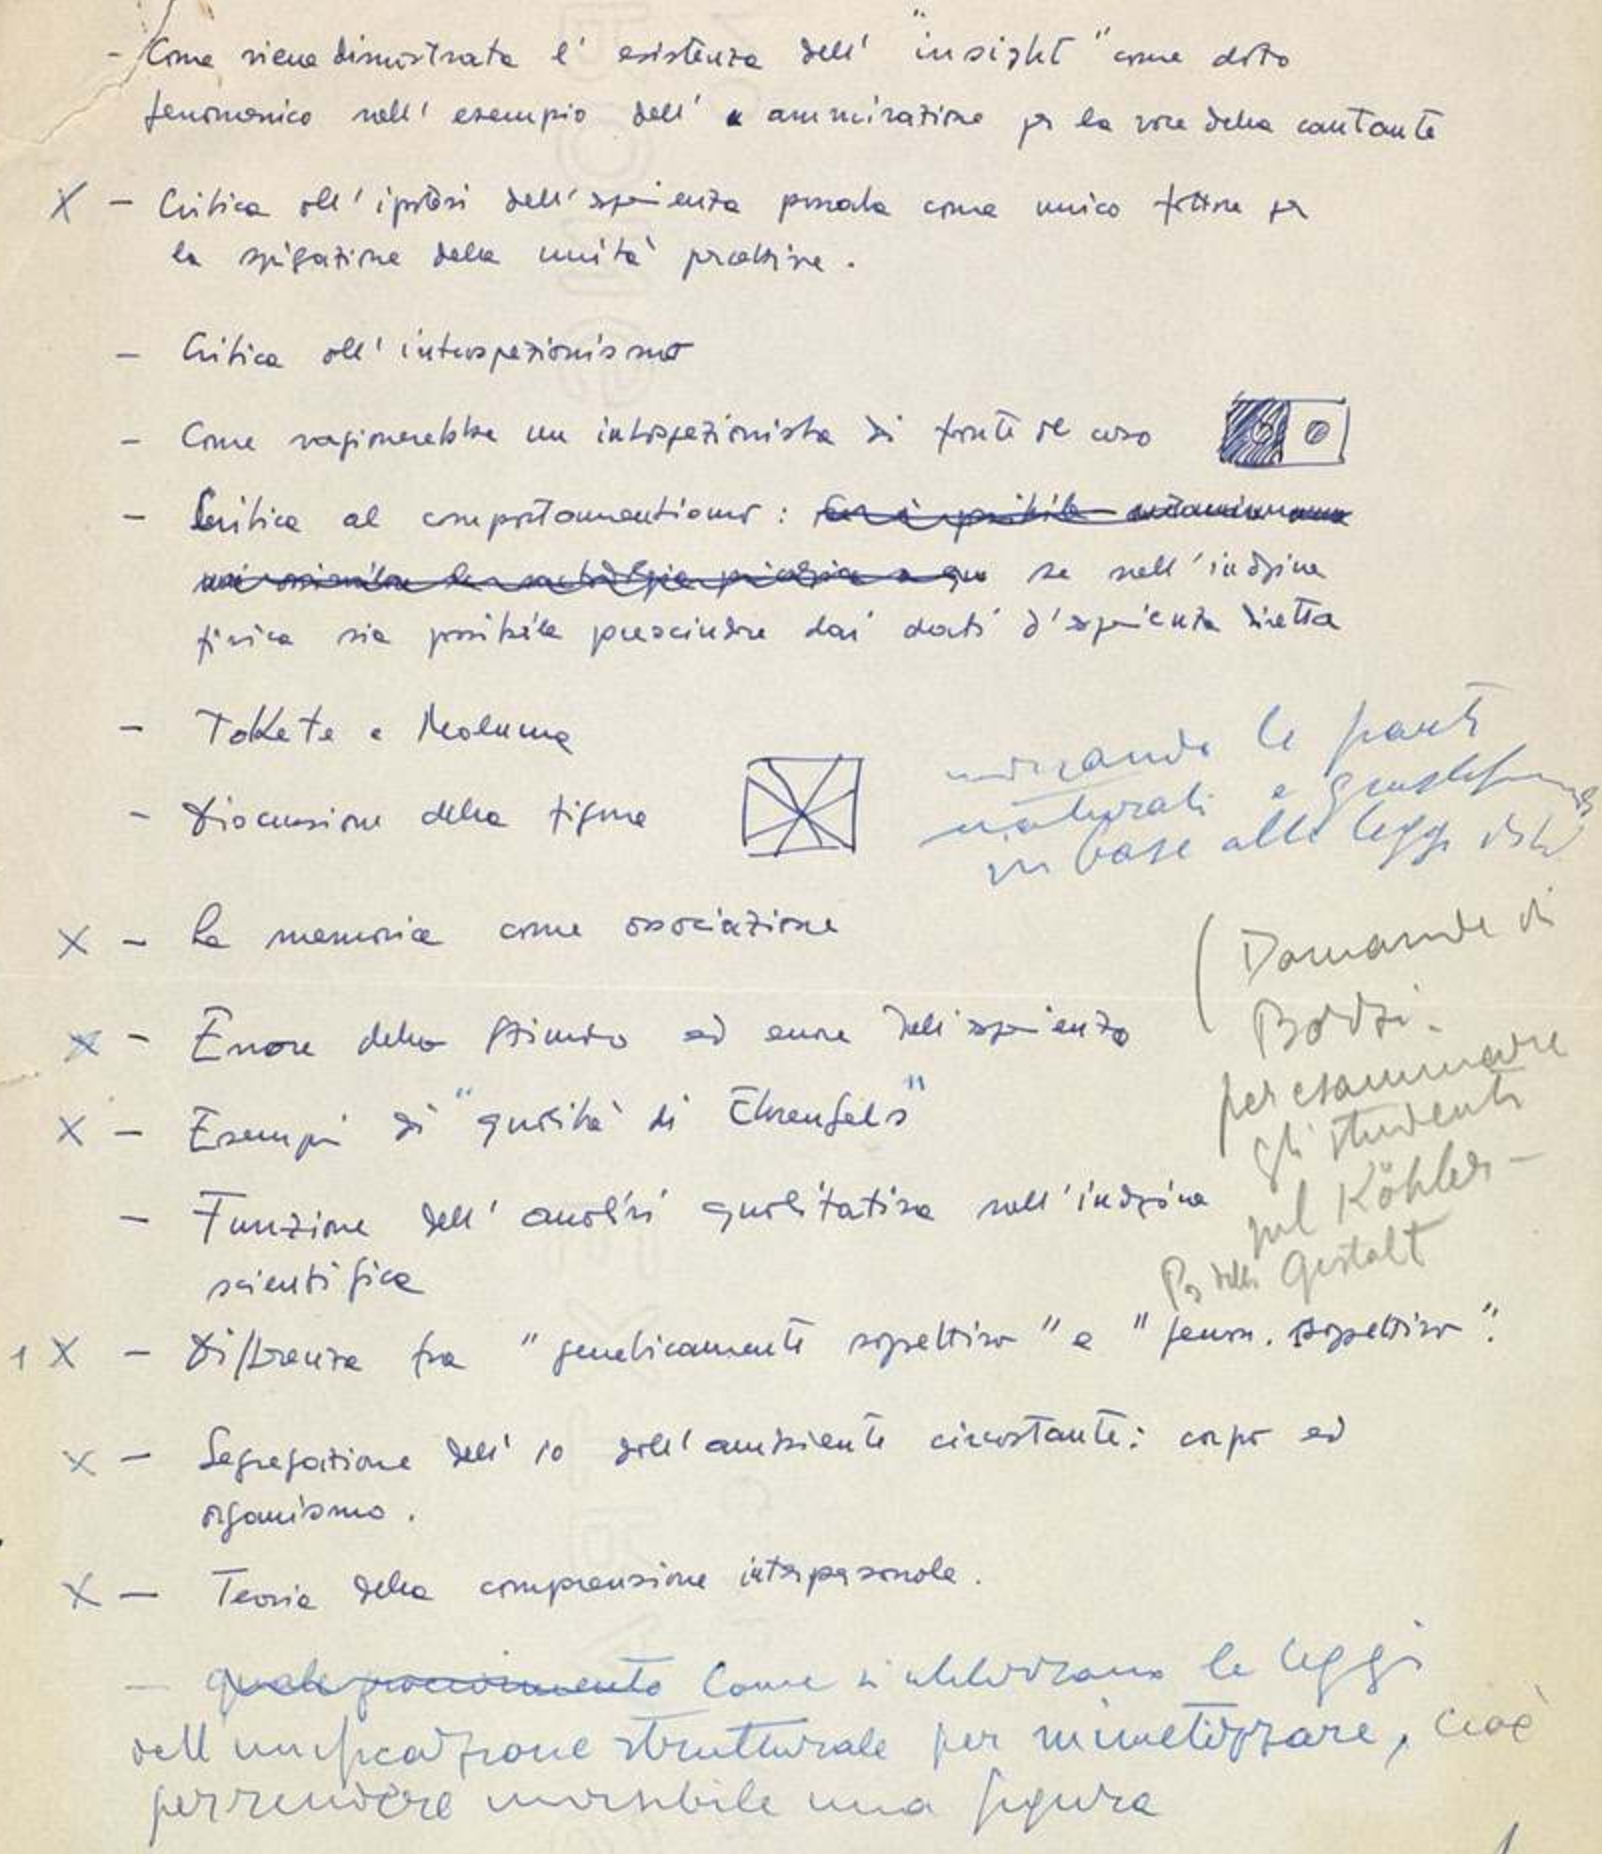 - Come viene dimostrata l'esistenza dell' "insight" come dato
fenomenico nell'esempio dell' ammirazione per la voce della cantante
X - Critica all'ipotesi dell'esperienza passata come unico fattore per
la spiegazione delle unità percettive.
- Critica all'introspezionismo
- Come ragionerebbe un introspezionista di fronte al caso
- Critica al comportamentismo:
se nell'indagine
fisica sia possibile prescindere dai dati d'esperienza diretta
- Takete e Maluma
- Discussione della figura
le parti
naturali e
in base alle leggi
X - La memoria come associazione
X - Errore dello stimolo ed errore dell'esperienza
X - Esempi di "qualità di Ehrenfels"
- Funzione dell'analisi qualitativa nell'indagine
scientifica
(Domande di
Bozzi.
per esaminare
gli studenti
sul Köhler -
Ps della Gestalt
1 X - Differenza fra "geneticamente soggettivo" e "fenom. soggettivo".
X - Segregazione dell'io dall'ambiente circostante: corpo ed
organismo.
X - Teoria della comprensione interpersonale.
- Come si utilizzano le leggi
dell'unificazione strutturale per mimetizzare, cioè
per rendere invisibile una figura